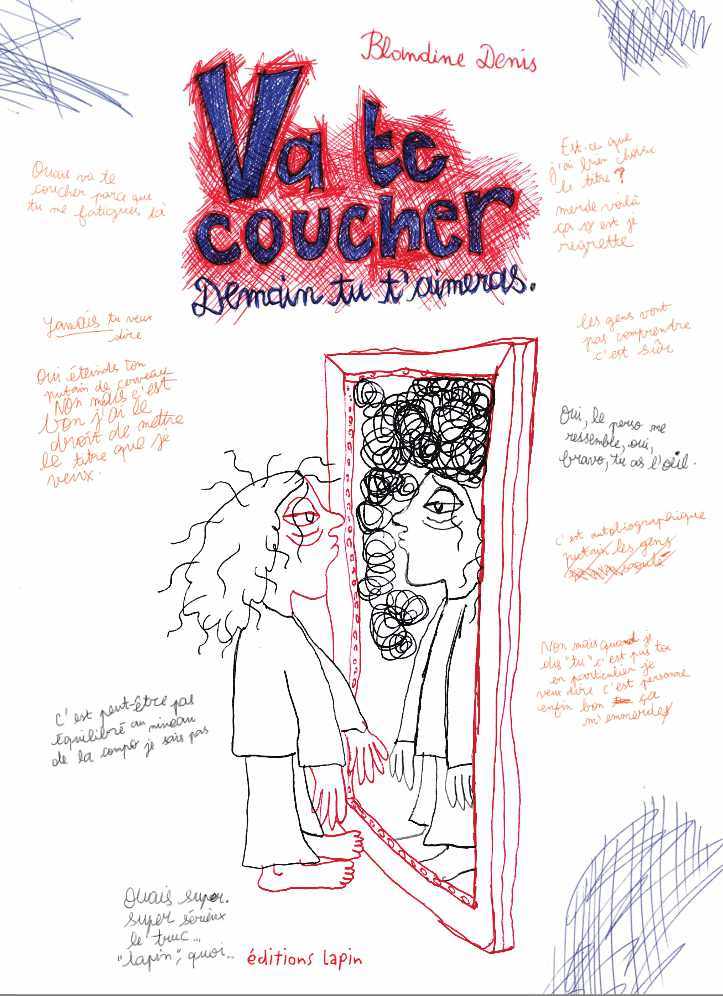 Blandine Denis
Va te
coucher
Demain tu t'aimeras.
Ouais va te
coucher parce que
tu me fatigues là
Est-ce que
j'ai bien choisi
le titre ?
merde voilà
ça y est je
regrette
Jamais tu veux
dire
Oui éteinds ton
putain de cerveau
Non mais c'est
bon j'ai le
droit de mettre
le titre que je
veux.
les gens vont
pas comprendre
c'est sûr
Oui, le perso me
ressemble, oui,
bravo, tu as l'oeil.
c'est autobiographique
putain les gens
Non mais quand je
dis "tu" c'est pas toi
en particulier je
veux dire c'est personne
enfin bon ça
m'emmerde
C'est peut-être pas
équilibré au niveau
de la compo je sais pas
Ouais super.
super sérieux
le truc...
"lapin", quoi..
éditions lapin